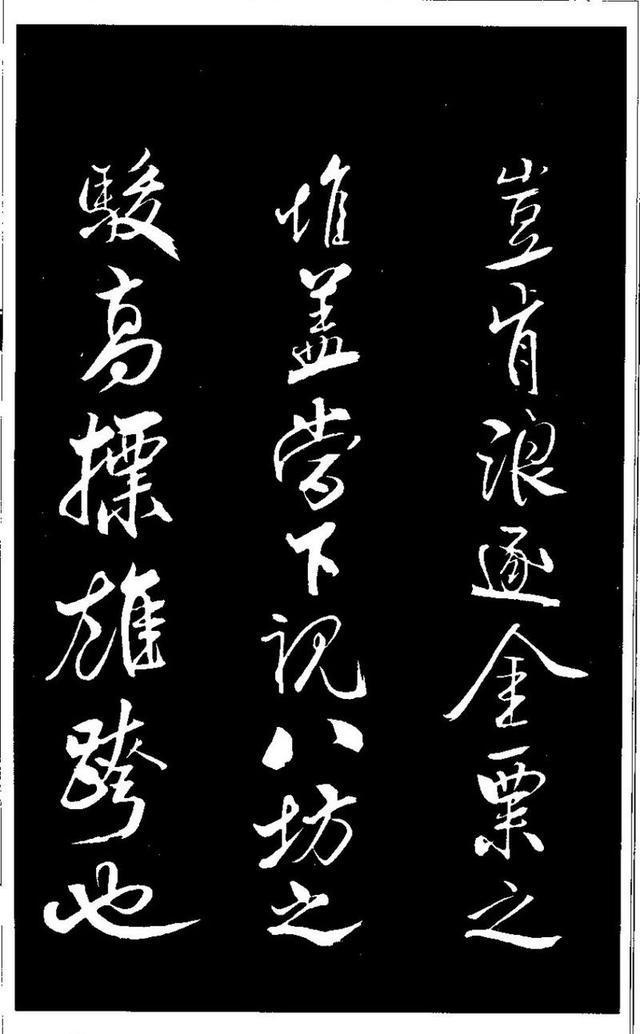 豈肯浪逐金粟之
堆盖當下視八坊之
駿高標雄跨也